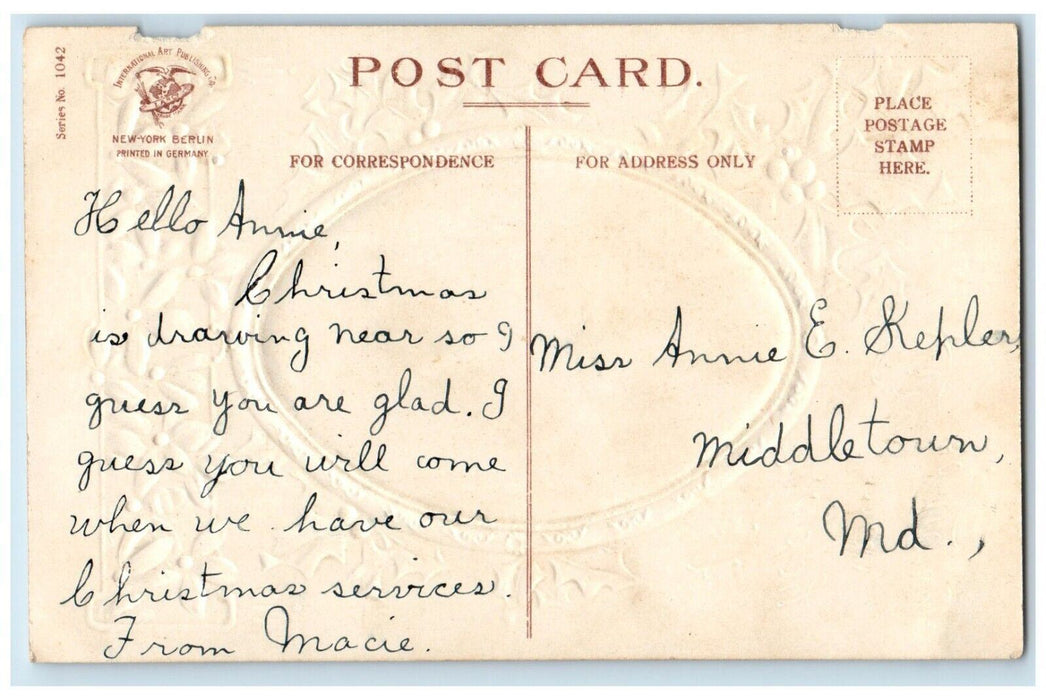 Series No. 1042
INTERNATIONAL ART PUBLISHING CO.
NEW-YORK BERLIN
PRINTED IN GERMANY
POST CARD.
FOR CORRESPONDENCE
FOR ADDRESS ONLY
PLACE
POSTAGE
STAMP
HERE.
Hello Annie,
Christmas
is drawing near so I
guess you are glad. I
guess you will come
when we have our
Christmas services.
From Macie.
Miss Annie E. Kepler,
Middletown,
Md.,